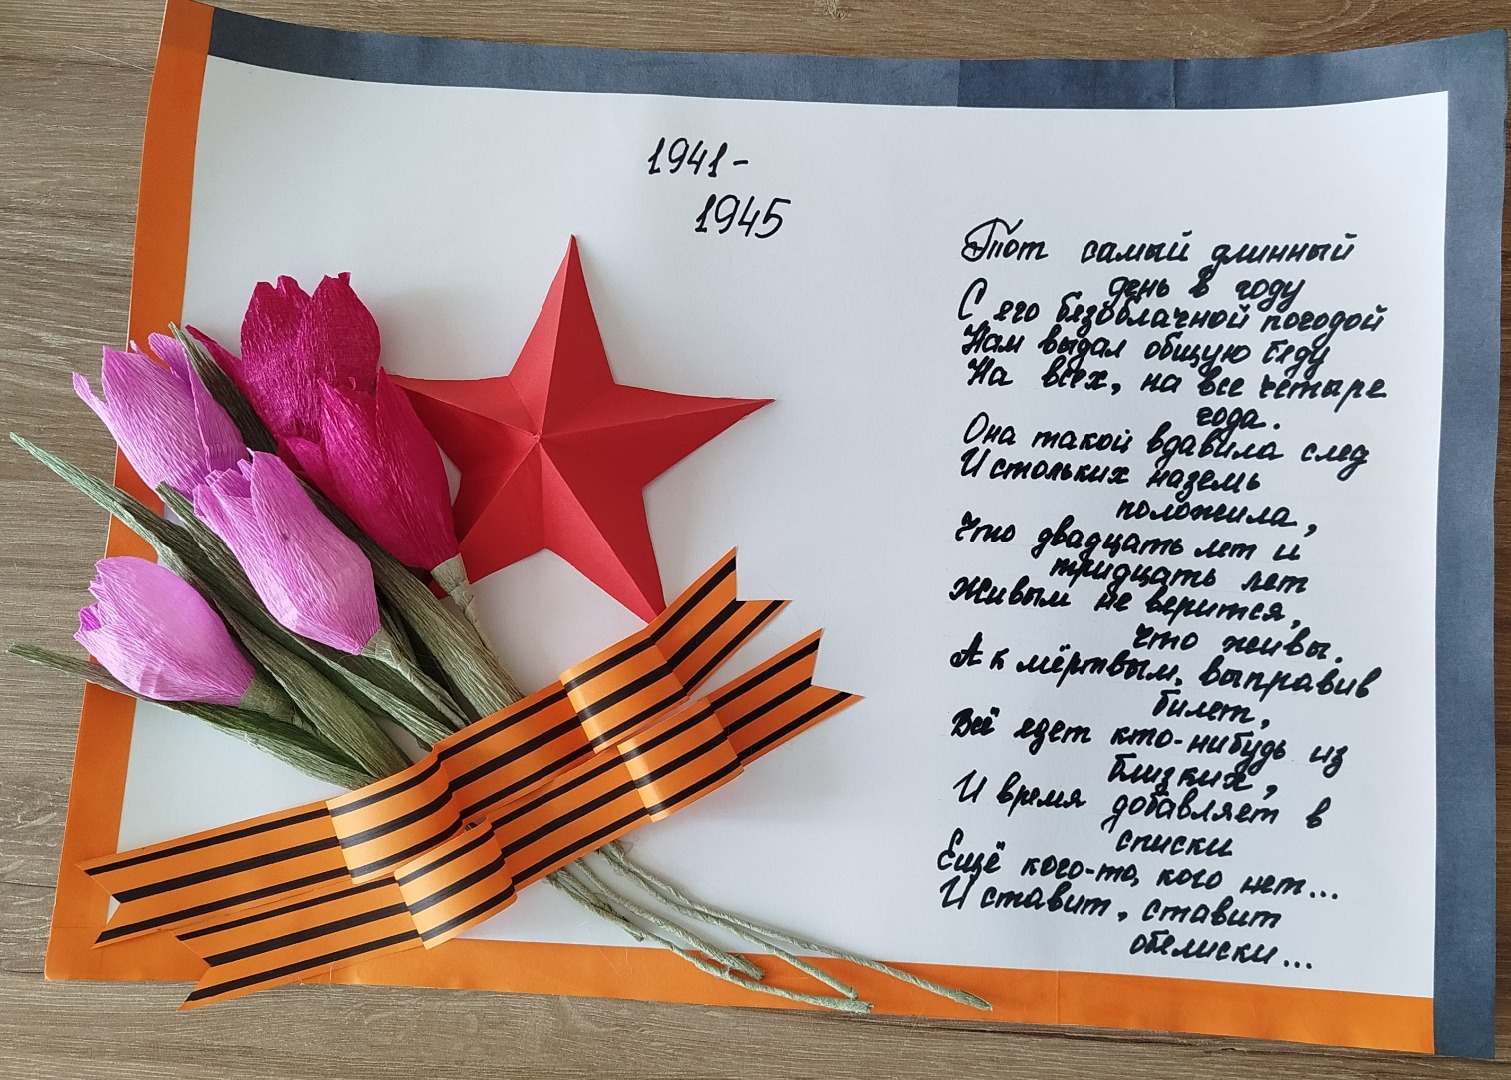 1941-
1945
Тот самый длинный
день в году
С его безоблачной погодой
Нам выдал общую беду
На всех, на все четыре
года.
Она такой вдавила след
И стольких наземь
положила,
Что двадцать лет и
тридцать лет
Живым не верится,
что живы.
А к мёртвым, выправив
билет,
Всё едет кто-нибудь из
близких,
И время добавляет в
списки
Ещё кого-то, кого нет...
И ставит, ставит
обелиски...